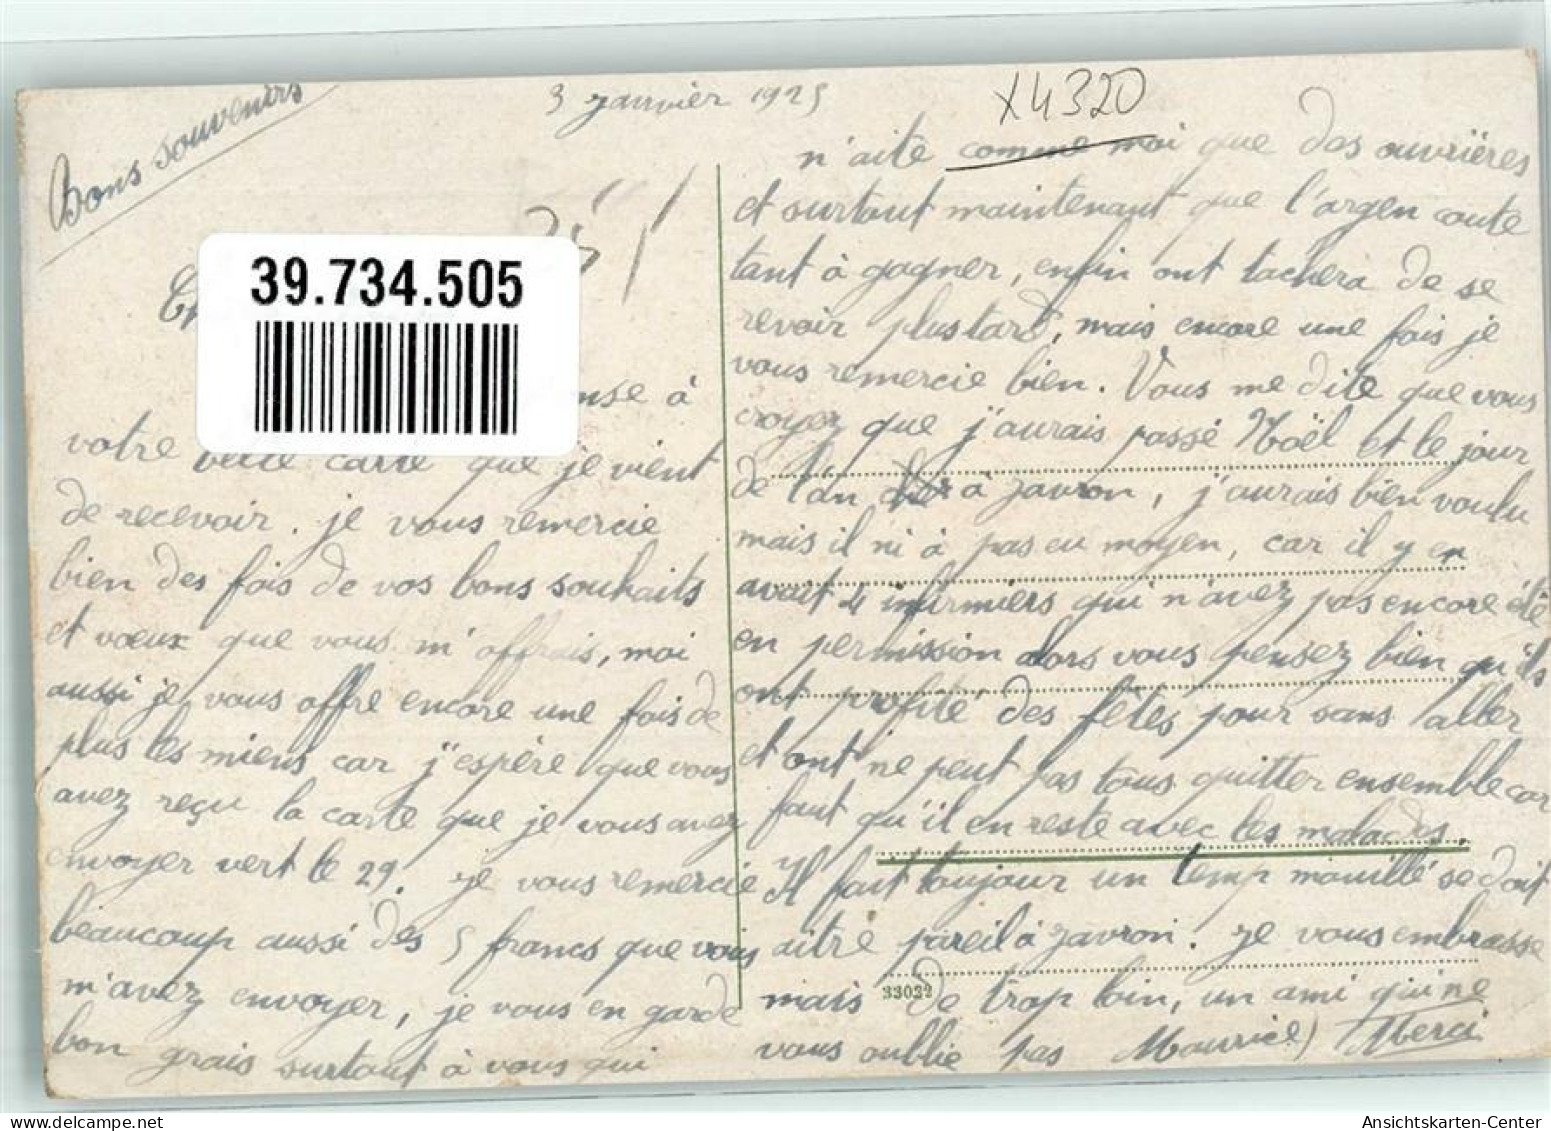 Bons souvenirs
3 janvier 1925
X4320
39.734.505
nse à
votre belle carte que je vient
de recevoir. je vous remercie
bien des fois de vos bons souhaits
et voeux que vous m'offrais, moi
aussi je vous offre encore une fois de
plus les miens car j'espère que vous
avez reçu la carte que je vous avez
envoyer vert le 29. je vous remercie
beaucoup aussi des 5 francs que vous
m'avez envoyer, je vous en garde
bon grais surtout à vous qui
n'aite comme moi que des ouvrières
et surtout maintenant que l'argen coute
tant à gagner, enfin ont tachera de se
revoir plustard, mais encore une fois je
vous remercie bien. Vous me dite que vous
croyez que j'aurais passé Noël et le jour
de l'an à Javron, j'aurais bien voulu
mais il ni à pas eu moyen, car il y en
avait 4 infirmiers qui n'avez pas encore été
en permission alors vous pensez bien qu'ils
ont profité des fêtes pour sans aller
et ont ne peut pas tous quitter ensemble car
faut qu'il en reste avec les malades.
Il fait toujour un temp mouillé se doit
aitre pareil à Javron. Je vous embrasse
mais de trop loin, un ami qui ne
33032
vous oublie pas Maurice) Merci
Ansichtskarten-Center